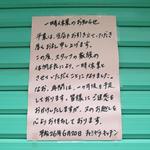 一時休業のお知らせ
平素は、当店をお引き立ていただき
厚くお礼申し上げます。
この度、スタッフの家族の
体調不良により、一時休業と
させていただくことになりました。
なお、再開は、一ヶ月後を予定
しております。皆様にご迷惑を
おかけしますが、又のお越しを
心よりお待ちしております。
平成26年6月20日